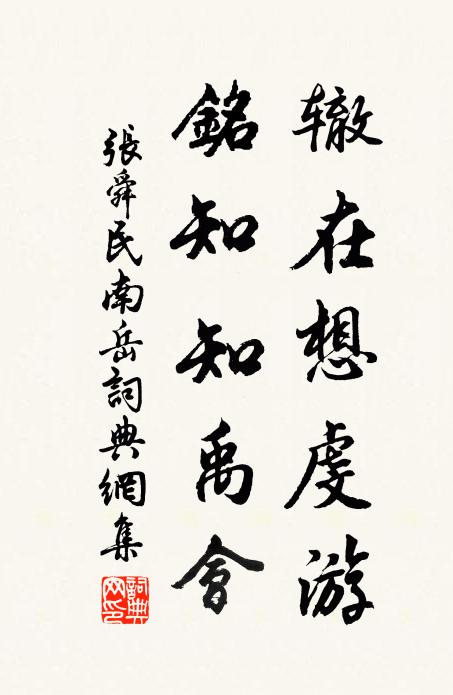 辙在想虔游
銘知知禹會
張舜民南岳詞典網集
詞典网印